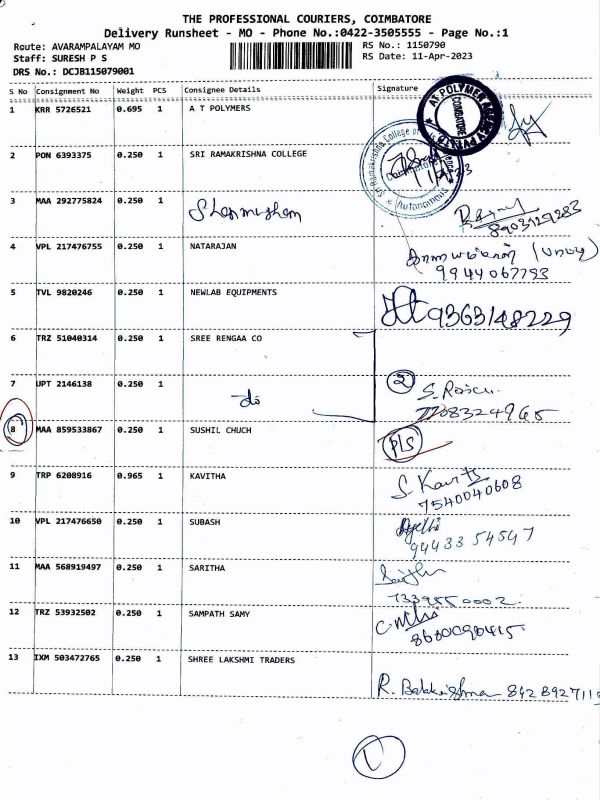 THE PROFESSIONAL COURIERS, COIMBATORE
Delivery Runsheet - MO - Phone No.:0422-3505555 - Page No.:1
Route: AVARAMPALAYAM MO
RS No.: 1150790
Staff: SURESH P S
RS Date: 11-Apr-2023
DRS No.: DCJB115079001
S No Consignment No Weight PCS Consignee Details Signature
1 KRR 5726521 0.695 1 A T POLYMERS
COIMBATORE
2 PON 6393375 0.250 1 SRI RAMAKRISHNA COLLEGE
Sri Ramakrishna College of
Autonomous
3 MAA 292775824 0.250 1 Shanmugham
8903129283
4 VPL 217476755 0.250 1 NATARAJAN
9944067793
5 TVL 9820246 0.250 1 NEWLAB EQUIPMENTS 9363148229
6 TRZ 51040314 0.250 1 SREE RENGAA CO
7 UPT 2146138 0.250 1 do 2
8 MAA 859533867 0.250 1 SUSHIL CHUCH P/S
9 TRP 6208916 0.965 1 KAVITHA S. Kavitha
7540040608
10 VPL 217476650 0.250 1 SUBASH
94433 54547
11 MAA 568919497 0.250 1 SARITHA
7339550002
12 TRZ 53932502 0.250 1 SAMPATH SAMY
13 IXM 503472765 0.250 1 SHREE LAKSHMI TRADERS
R. Balakrishna
1